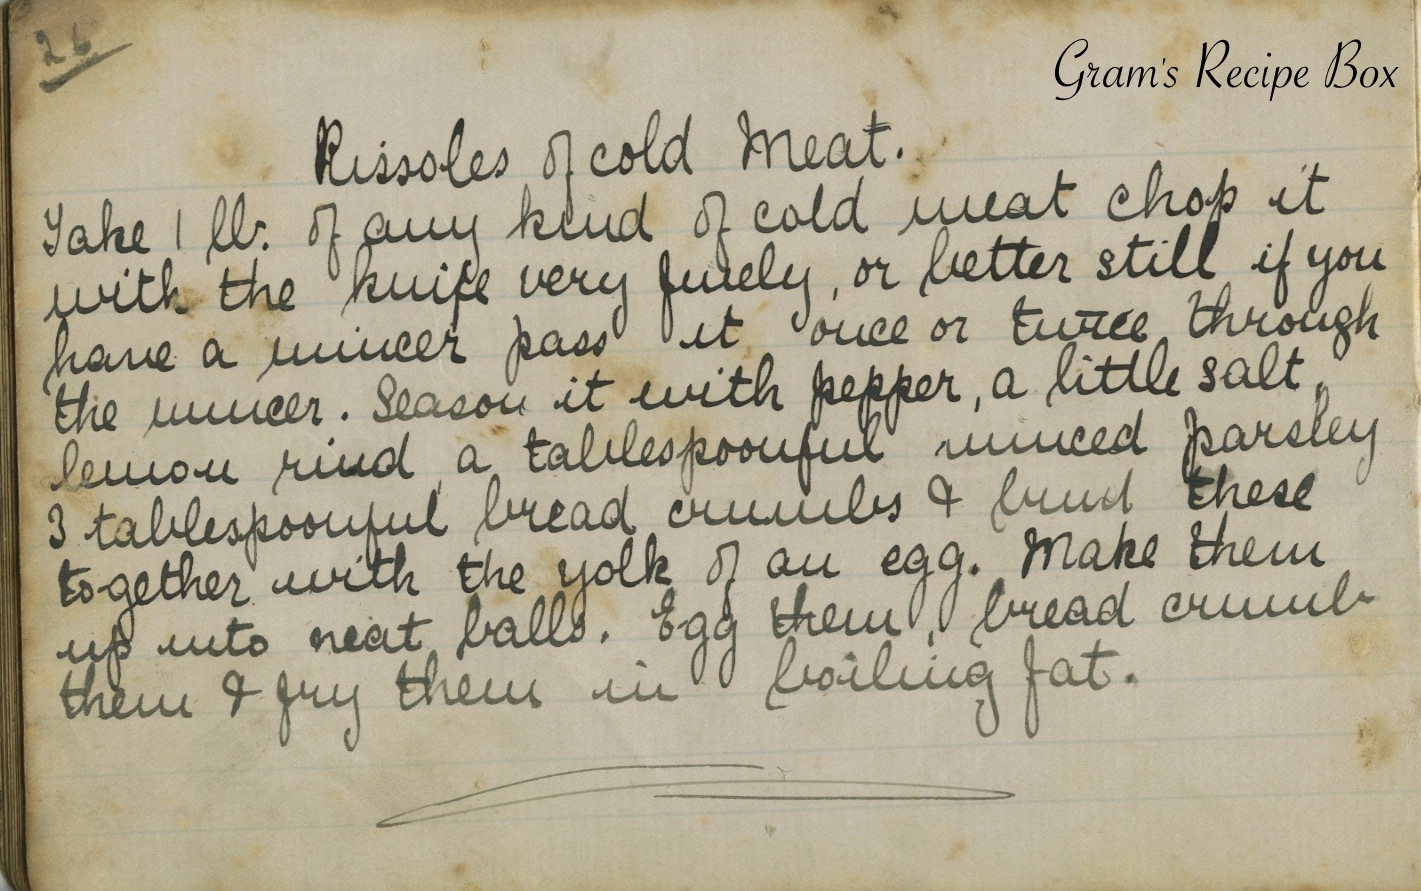 26
Gram's Recipe Box
Rissoles of cold Meat.
Take 1 lb. of any kind of cold meat chop it
with the knife very finely, or better still if you
have a mincer pass it once or twice through
the mincer. Season it with pepper, a little salt,
lemon rind, a tablespoonful minced parsley
3 tablespoonful bread crumbs & bind these
together with the yolk of an egg. Make them
up into neat balls. Egg them, bread crumb
them & fry them in boiling fat.